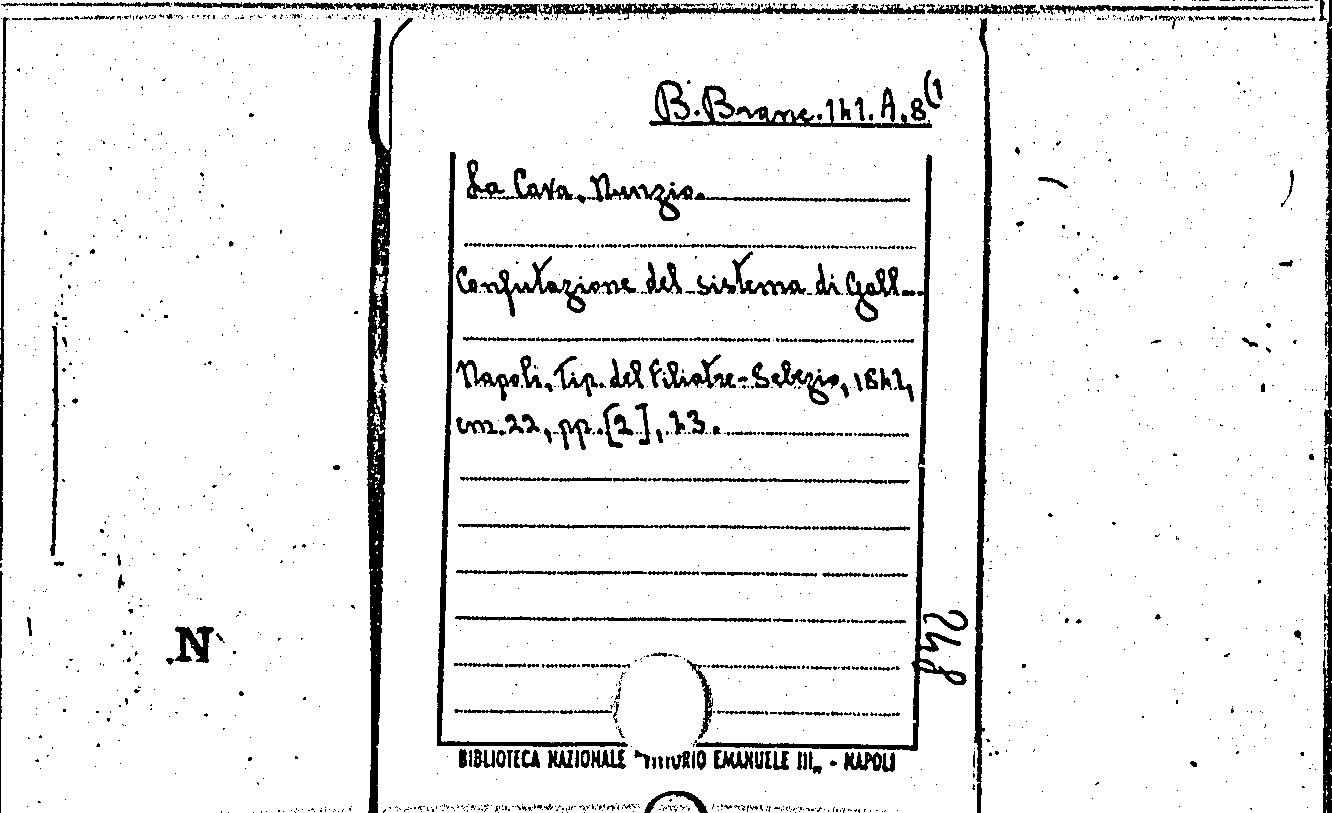 B. Branc. 141. A. 8(1
La Cava, Nunzio.
Confutazione del sistema di Gall...
Napoli, Tip. del Filiatre-Sebezio, 1841,
cm. 22, pp. [2], 23.
248
N
BIBLIOTECA NAZIONALE "VITTORIO EMANUELE III„ - NAPOLI